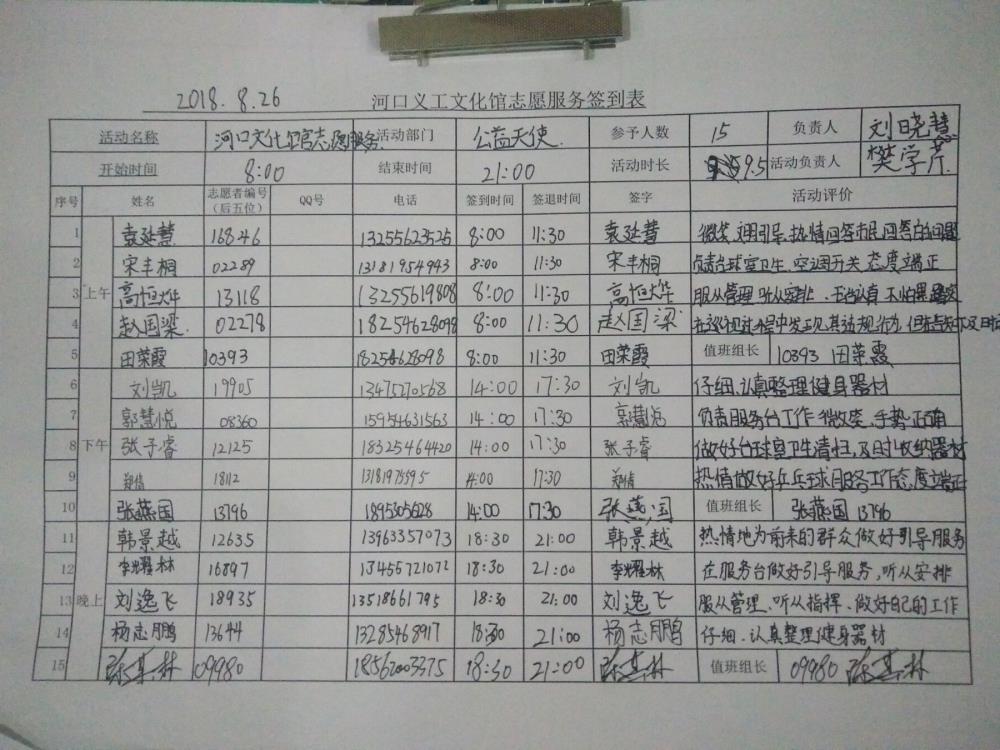 2018.8.26 河口义工文化馆志愿服务签到表
活动名称 河口文化馆志愿服务 活动部门 公益天使 参予人数 15 负责人 刘晓慧
开始时间 8:00 结束时间 21:00 活动时长 9.5 活动负责人 樊学芹
序号 姓名 志愿者编号（后五位） QQ号 电话 签到时间 签退时间 签字 活动评价
1 袁延慧 16846 13255623525 8:00 11:30 袁延慧 微笑 文明引导,热情回答市民回答的问题
2 宋丰桐 02289 13181954943 8:00 11:30 宋丰桐 负责台球室卫生,空调开关 态度端正
3 上午 高恒烨 13118 13255619808 8:00 11:30 高恒烨 服从管理 听从安排、 认真 不怕
4 赵国梁 02278 18254628098 8:00 11:30 赵国梁 在巡视过程中发现其违规行为,
5 田荣霞 10393 18254628098 8:00 11:30 田荣霞 值班组长 10393 田荣霞
6 刘凯 19905 13475270568 14:00 17:30 刘凯 仔细、认真整理健身器材
7 郭慧悦 08360 15954631563 14:00 17:30 郭慧悦 负责服务台工作 微笑、手势正确
8 下午 张子睿 12125 18325464420 14:00 17:30 张子睿 做好台球室卫生清扫,及时收纳器材
9 郑倩 18112 13181975595 14:00 17:30 郑倩 热情做好乒乓球服务工作态度端正
10 张燕国 13796 1895305628 14:00 17:30 张燕国 值班组长 张燕国 13796
11 韩景越 12635 13963357073 18:30 21:00 韩景越 热情地为前来的群众做好引导服务
12 李耀林 16897 13455721072 18:30 21:00 李耀林 在服务台做好引导服务,听从安排
13 晚上 刘逸飞 18935 13518661795 18:30 21:00 刘逸飞 服从管理、听从指挥、做好自己的工作
14 杨志鹏 13644 13285468917 18:30 21:00 杨志鹏 仔细、认真整理健身器材
15 陈其林 09980 18562003375 18:30 21:00 陈其林 值班组长 09980 陈其林